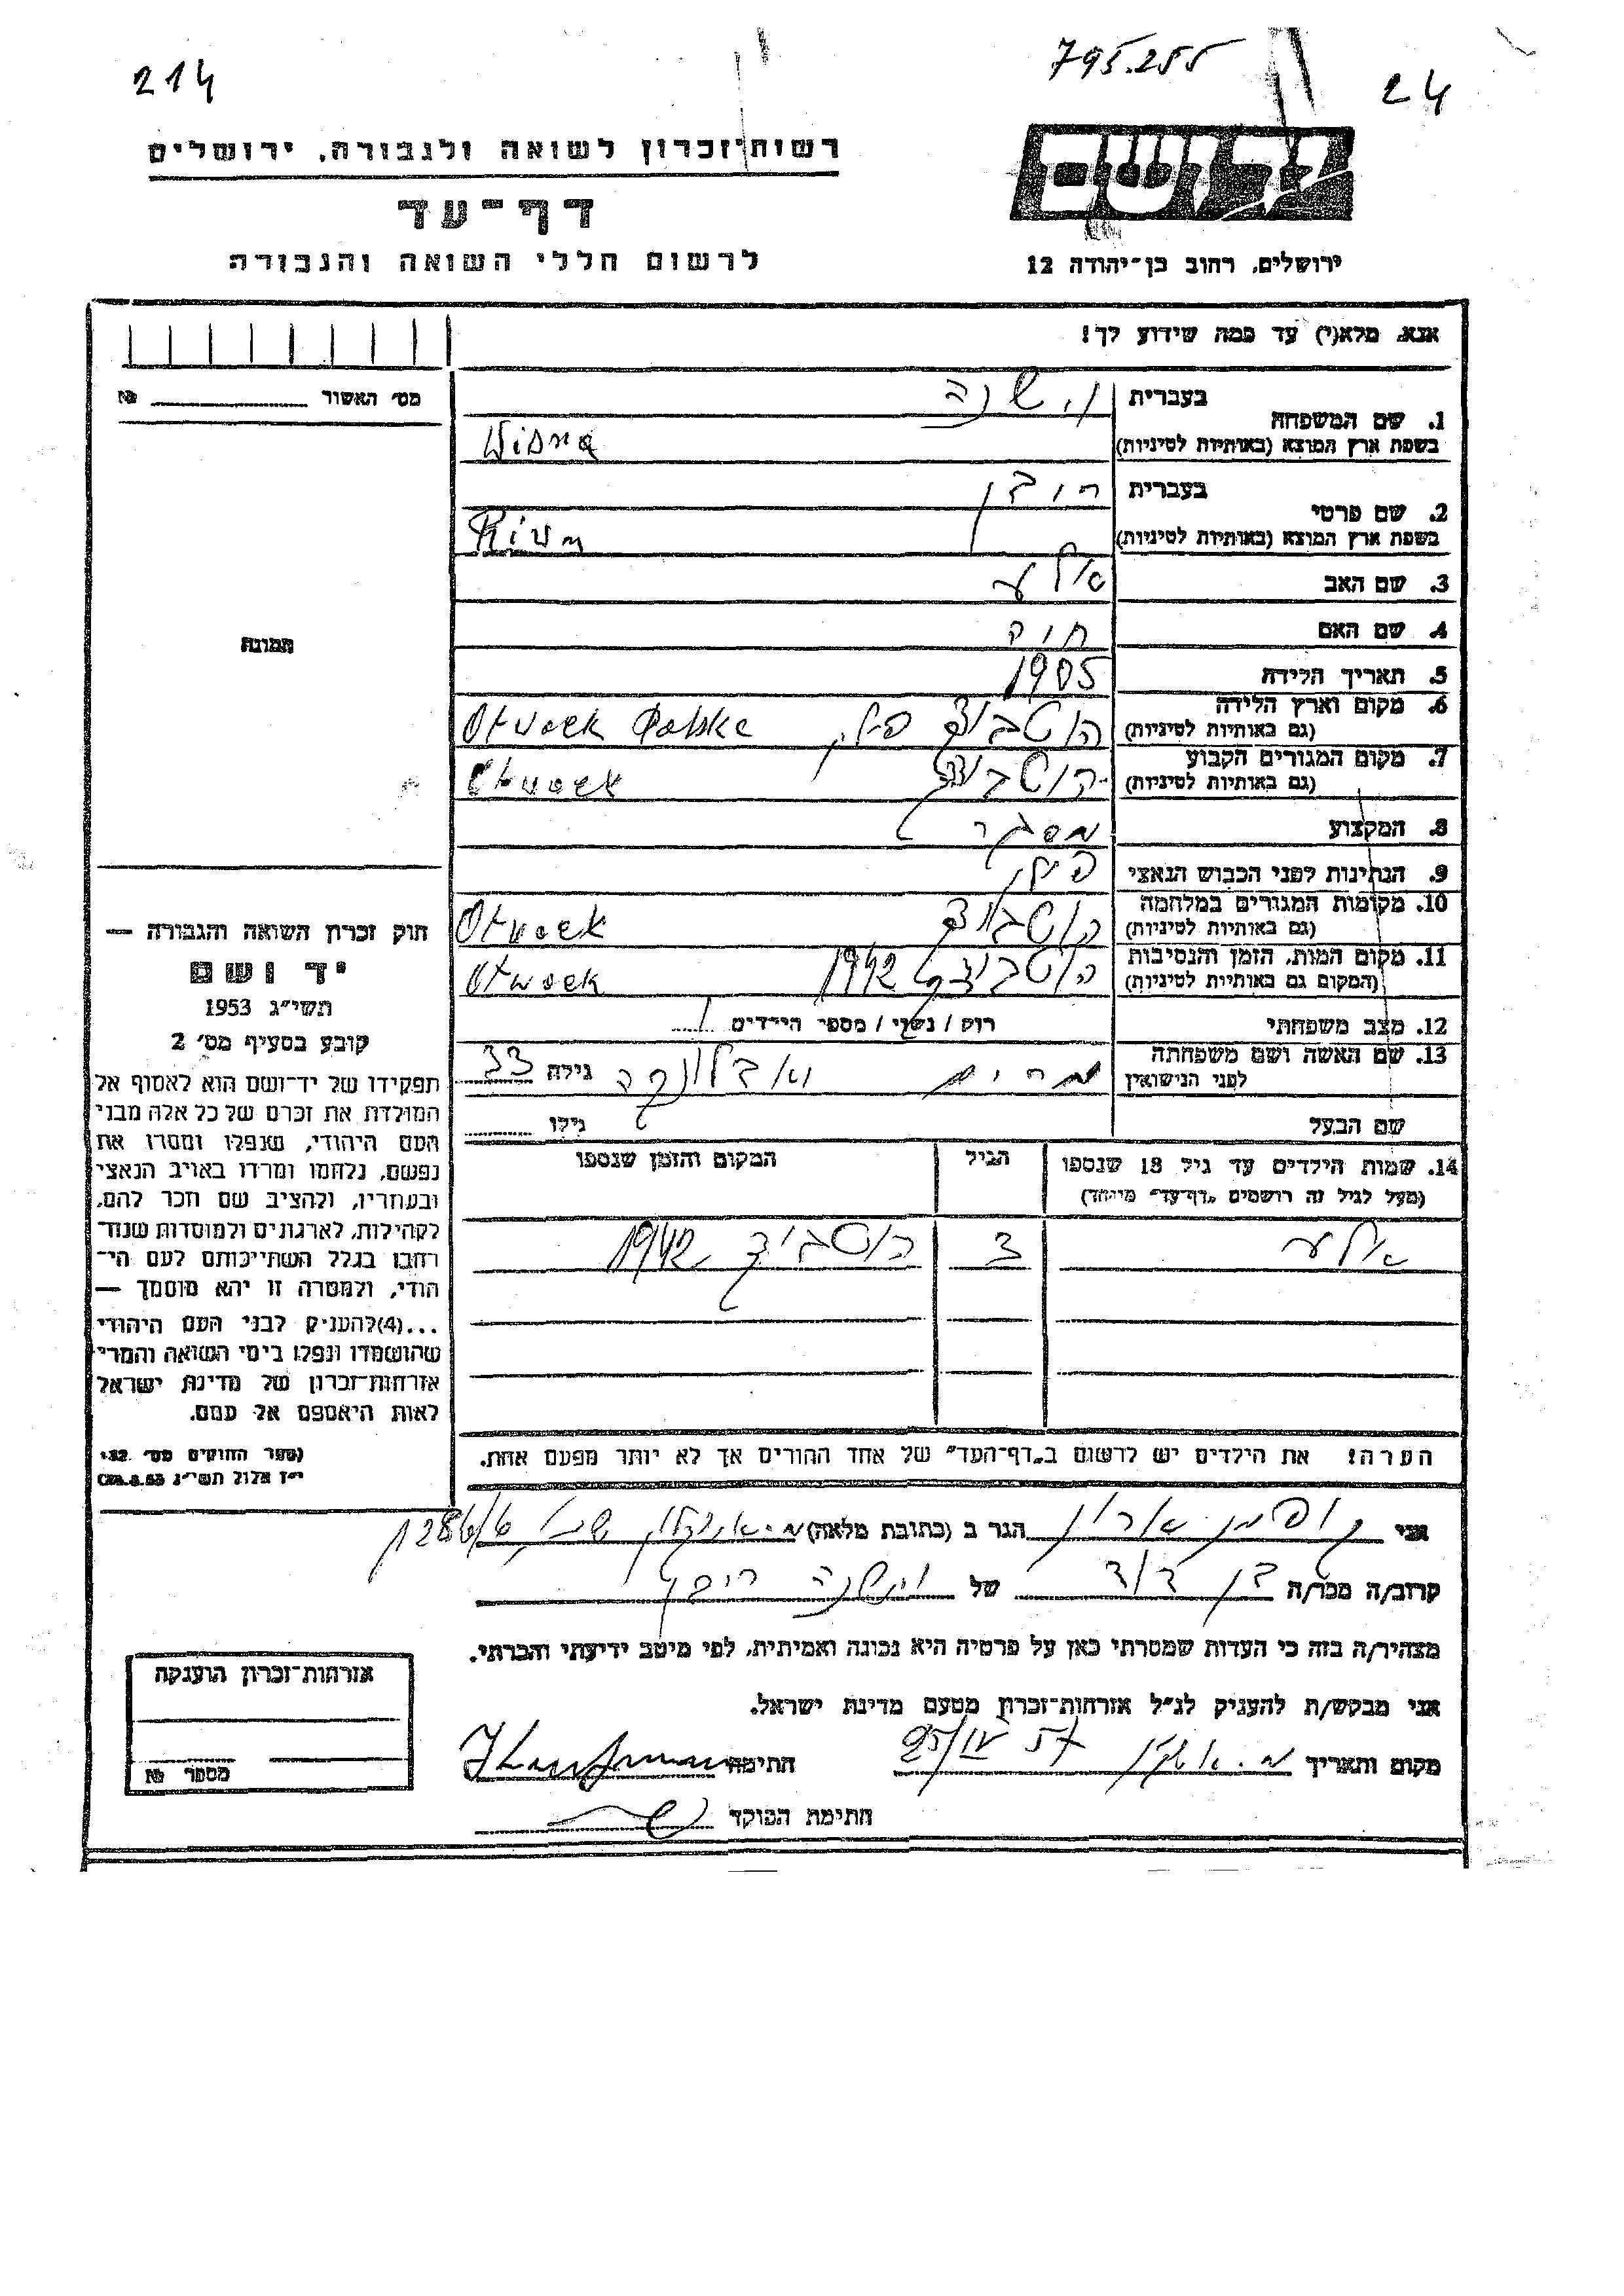 214
795.255
24
רשות־זכרון לשואה ולגבורה, ירושלים
דף־עד
לרשום חללי השואה והגבורה
ירושלים, רחוב בן־יהודה 12
אנא, מלא(י) עד כמה שידוע לך!
מס׳ האשור № 
1. שם המשפחה בעברית וישנה
בשפת ארץ המוצא (באותיות לטיניות) Wisna
2. שם פרטי בעברית רובן
בשפת ארץ המוצא (באותיות לטיניות) Rivn
3. שם האב
4. שם האם
5. תאריך הלידה 1905
6. מקום וארץ הלידה
(גם באותיות לטיניות) Otwock Polska
7. מקום המגורים הקבוע
(גם באותיות לטיניות) Otwock
8. המקצוע מסגר
9. הנתינות לפני הכבוש הנאצי פולין
10. מקומות המגורים במלחמה
(גם באותיות לטיניות) Otwock
11. מקום המות, הזמן והנסיבות 1942
(המקום גם באותיות לטיניות) Otwock
12. מצב משפחתי רוק / נשוי / מספר הילדים 1
13. שם האשה ושם משפחתה
לפני הנישואין מרים גילה 33
שם הבעל גילו
14. שמות הילדים עד גיל 18 שנספו הגיל המקום והזמן שנספו
(מעל לגיל זה רושמים „דף־עד״ מיוחד)
3 1942
הערה! את הילדים יש לרשום ב„דף־העד״ של אחד ההורים אך לא יותר מפעם אחת.
תמונה
חוק זכרון השואה והגבורה —
יד ושם
תשי״ג 1953
קובע בסעיף מס׳ 2
תפקידו של יד־ושם הוא לאסוף אל
המולדת את זכרם של כל אלה מבני
העם היהודי, שנפלו ומסרו את
נפשם, נלחמו ומרדו באויב הנאצי
ובעוזריו, ולהציב שם וזכר להם,
לקהילות, לארגונים ולמוסדות שנח־
רבו בגלל השתייכותם לעם הי־
הודי, ולמטרה זו יהא מוסמך —
...(4)להעניק לבני העם היהודי
שהושמדו ונפלו בימי השואה והמרי
אזרחות־זכרון של מדינת ישראל
לאות היאספם אל עמם.
(ספר החוקים מס׳ 132.
י״ז אלול תשי״ג 28.8.53)
אני קופמן אהרון הגר ב (כתובת מלאה)
קרוב/ה מכר/ה בן דוד של וישנה רובן
מצהיר/ה בזה כי העדות שמסרתי כאן על פרטיה היא נכונה ואמיתית, לפי מיטב ידיעתי והכרתי.
אני מבקש/ת להעניק לנ״ל אזרחות־זכרון מטעם מדינת ישראל.
מקום ותאריך 25/IV 57 חתימה
חתימת הפוקד
אזרחות־זכרון הוענקה
מספר №